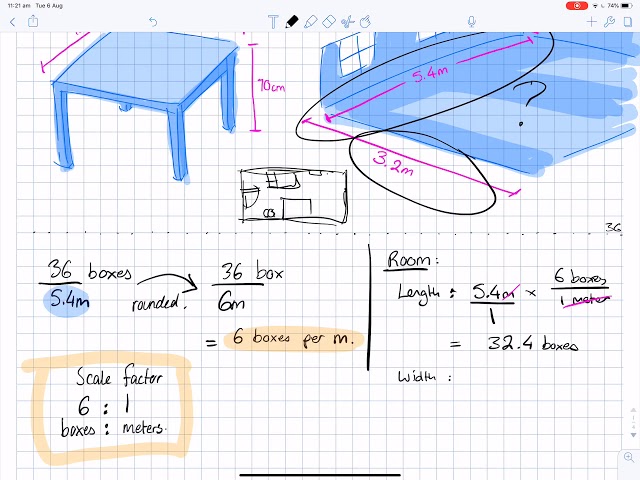 11:21 am Tue 6 Aug
74%
70cm
5.4m
?
3.2m
36
36 boxes
5.4m
rounded.
36 box
6m
= 6 boxes per m.
Scale factor
6 : 1
boxes : meters.
Room:
Length : 5.4m × 6 boxes
1 1 meter
= 32.4 boxes
Width :